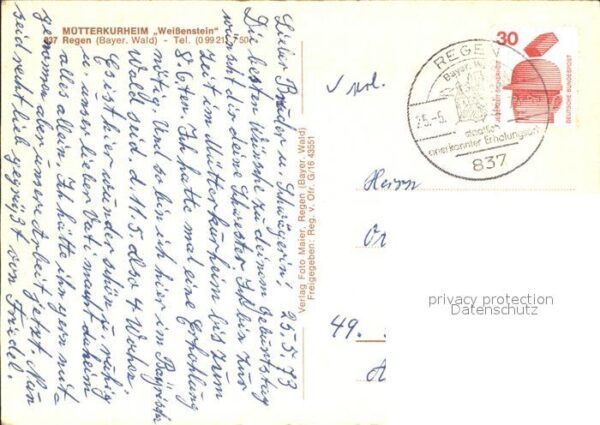 MÜTTERKURHEIM „Weißenstein"
837 Regen (Bayer. Wald) - Tel. (0 99 21) 7 50
25.5.73
Lieber Bruder u. Schwägerin!
Die besten Wünsche zu deinem Geburtstag
wünscht dir deine Schwester. Ich bin zur
Zeit im Mütterkurheim bis zum
8.6ten. Ich hatte mal eine Erholung
nötig. Und so bin ich hier im Bayrischen
Wald seid d. 11.5. also 4 Wochen.
Es ist hier wunder schön u. ruhig
u. unser lieber Vati macht daheim
alles allein. Ich hätte ihn gern mit-
genommen aber unsere Arbeit jetzt. Nun
seid recht lieb gegrüßt von Friedel.
Verlag Foto Maier, Regen (Bayer. Wald)
Freigegeben: Reg. v. Ofr. G/16 43551
30
DEUTSCHE BUNDESPOST
REGEN
Bayer. W
25.-5.
staatlich
anerkannter Erholungsort
837
Herrn
49.
privacy protection
Datenschutz